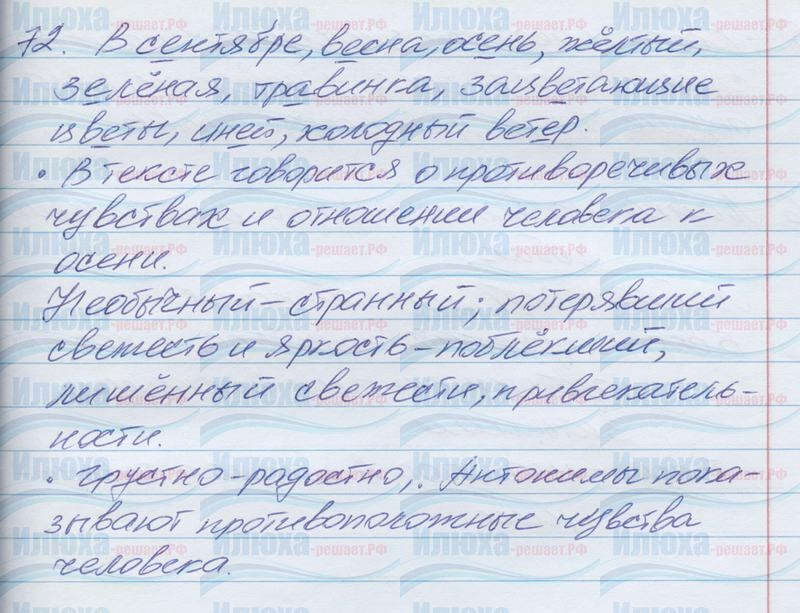 72. В сентябре, весна, осень, жёлтый,
зелёная, травинка, зацветающие
цветы, иней, холодный ветер.
• В тексте говорится о противоречивых
чувствах и отношении человека к
осени.
Необычный – странный; потерявший
свежесть и яркость – поблёкший,
лишённый свежести, привлекатель-
ности.
• Грустно-радостно,. Антонимы пока-
зывают противоположные чувства
человека.
Илюха-решает.РФ